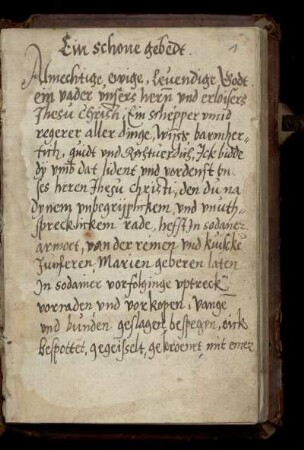 Ein schone gebedt. 1
Almechtige, ewige, leuendige Godt
ein vader vnsers hern vnd erloisers
Jhesu Christi, Ein schepper vnnd
regerer aller dinge, wyss barmher-
tich, gudt vnd
dy vmb dat lident vnd vordenst vn
ses heren Jhesu christi, den du na
dynem vnbegrypliken vnd vnuth-
spreckliken rade, hefst In sodaner
armoet, van der reinen vnd kuiscke
Junferen Marien geberen laten
In sodaner vorfolginge vptreck
vorraden vnd vorkopen, vange
vnd bunden geslagen, bespegen, dick
bespottet, gegeisselt, gekroent, mit einer